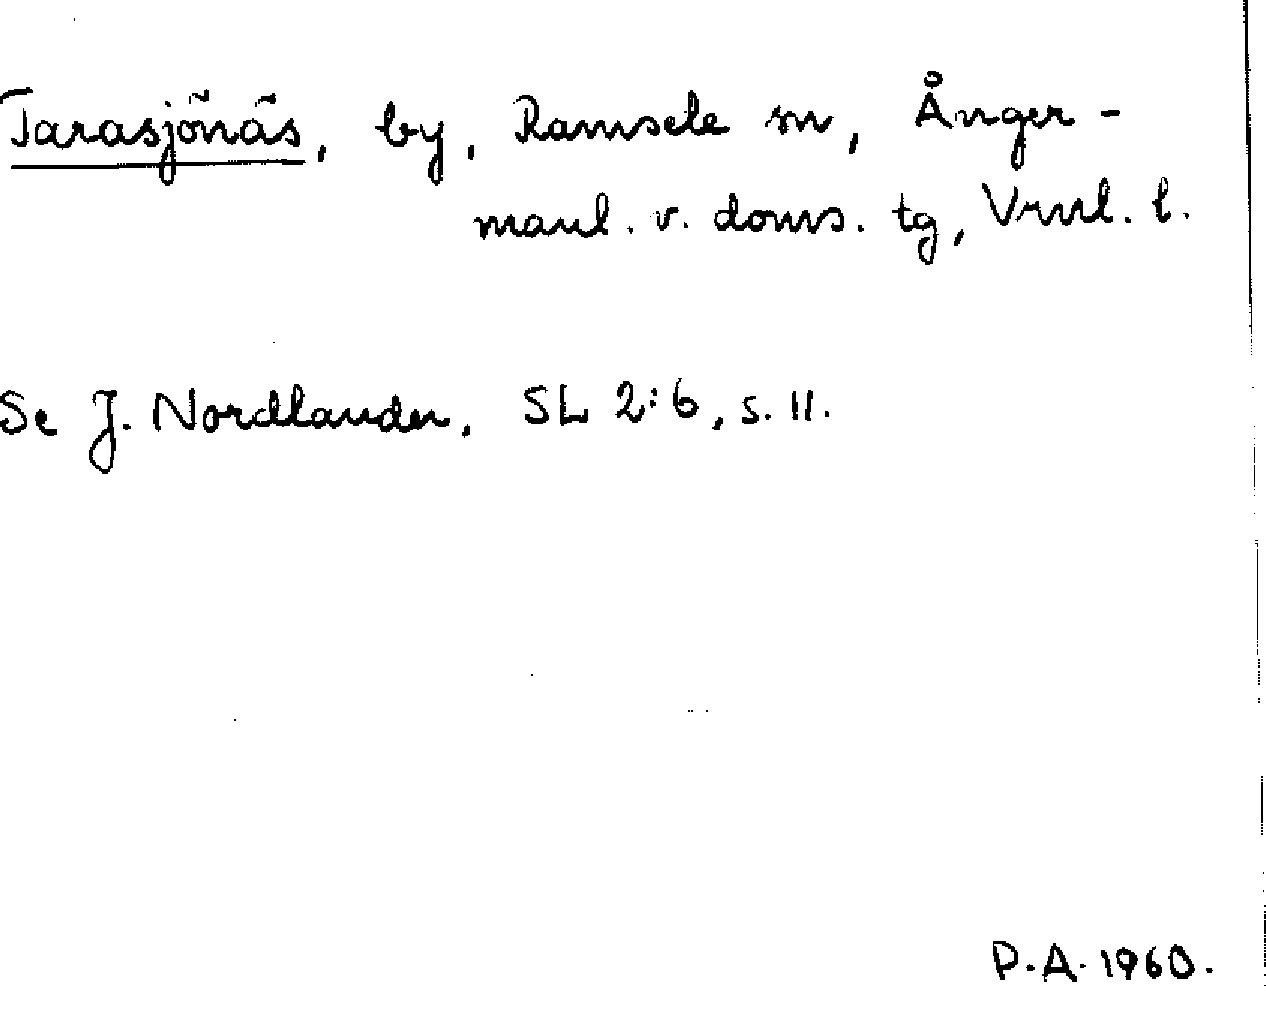 Tarasjönäs, by, Ramsele sn, Ånger-
manl. v. doms. tg, Vrnl. l.
Se J. Nordlander, SL 2:6, s. 11.
P.A. 1960.